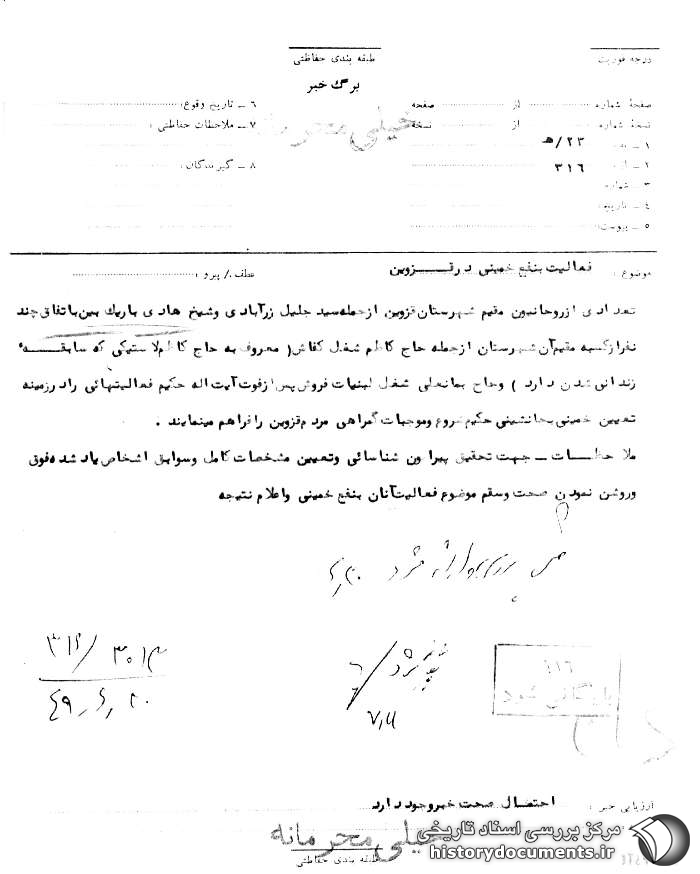 درجه فوریت
طبقه بندی حفاظتی
برگ خبر
صفحهٔ شماره از صفحه
نسخهٔ شماره از نسخه
۱ ــ به ۲۳ /هـ
۲ ــ از ۳۱۶
۳ ــ شماره
۴ ــ تاریخ
۵ ــ پیوست
۶ ــ تاریخ وقوع
۷ ــ ملاحظات حفاظتی
۸ ــ گیرندگان
خیلی محرمانه
موضوع : فعالیت بنفع خمینی در قـــزوین
عطف / پیرو
تعدادی از روحانیون مقیم شهرستان قزوین ازجمله سید جلیل زرآبادی و شیخ هادی باریک بین باتفاق چند
نفر از کسبه مقیم آن شهرستان ازجمله حاج کاظم شغل کفاش ( معروف به حاج کاظم لاستیکی که سابقـــه
زندانی شدن دارد ) و حاج شغل لبنیات فروش پس از فوت آیت اله حکیم فعالیتهائی را در زمینه
تعیین خمینی بجانشینی حکیم شروع و موجبات گمراهی مردم قزوین را فراهم مینمایند .
ملاحظـــات ــ جهت تحقیق پیرامون شناسائی و تعیین مشخصات کامل و سوابق اشخاص یاد شده فوق
و روشن نمودن صحت و سقم موضوع فعالیت آنان بنفع خمینی و اعلام نتیجه
۳۱۶/۳۰۱۳
۴۹٫۶٫۲۰
۳۱۶
بایگانی شود
ارزیابی خبر : احتمال صحت خبر وجود دارد
خیلی محرمانه
طبقه بندی حفاظتی
مرکز بررسی اسناد تاریخی
historydocuments.ir